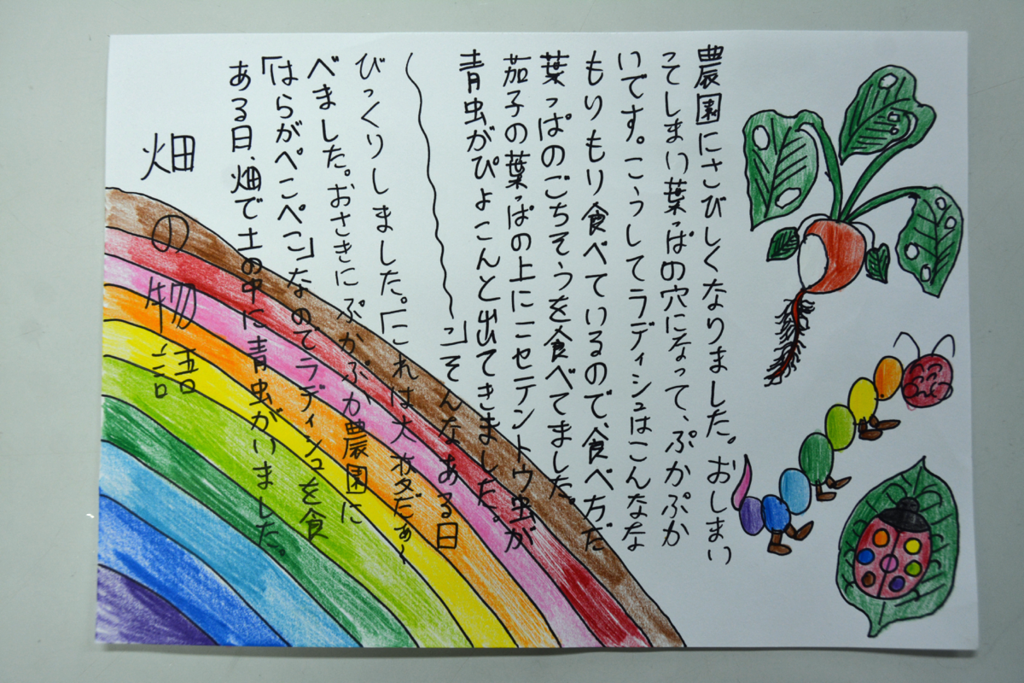 畑の物語
ある日、畑で土の中に青虫がいました。
「はらがぺこぺこ」なのでラディシュを食
べました。おさきにぷかぷか農園に
びっくりしました。「これは大変だぁ〜
〜」そんなある日
青虫がぴょこんと出てきました。
茄子の葉っぱの上にニセテントウ虫が
葉っぱのごちそうを食べてました。
もりもり食べているので、食べ方だ
いです。こうしてラディシュはこんなな
ってしまい葉っぱの穴になって、ぷかぷか
農園にさびしくなりました。おしまい